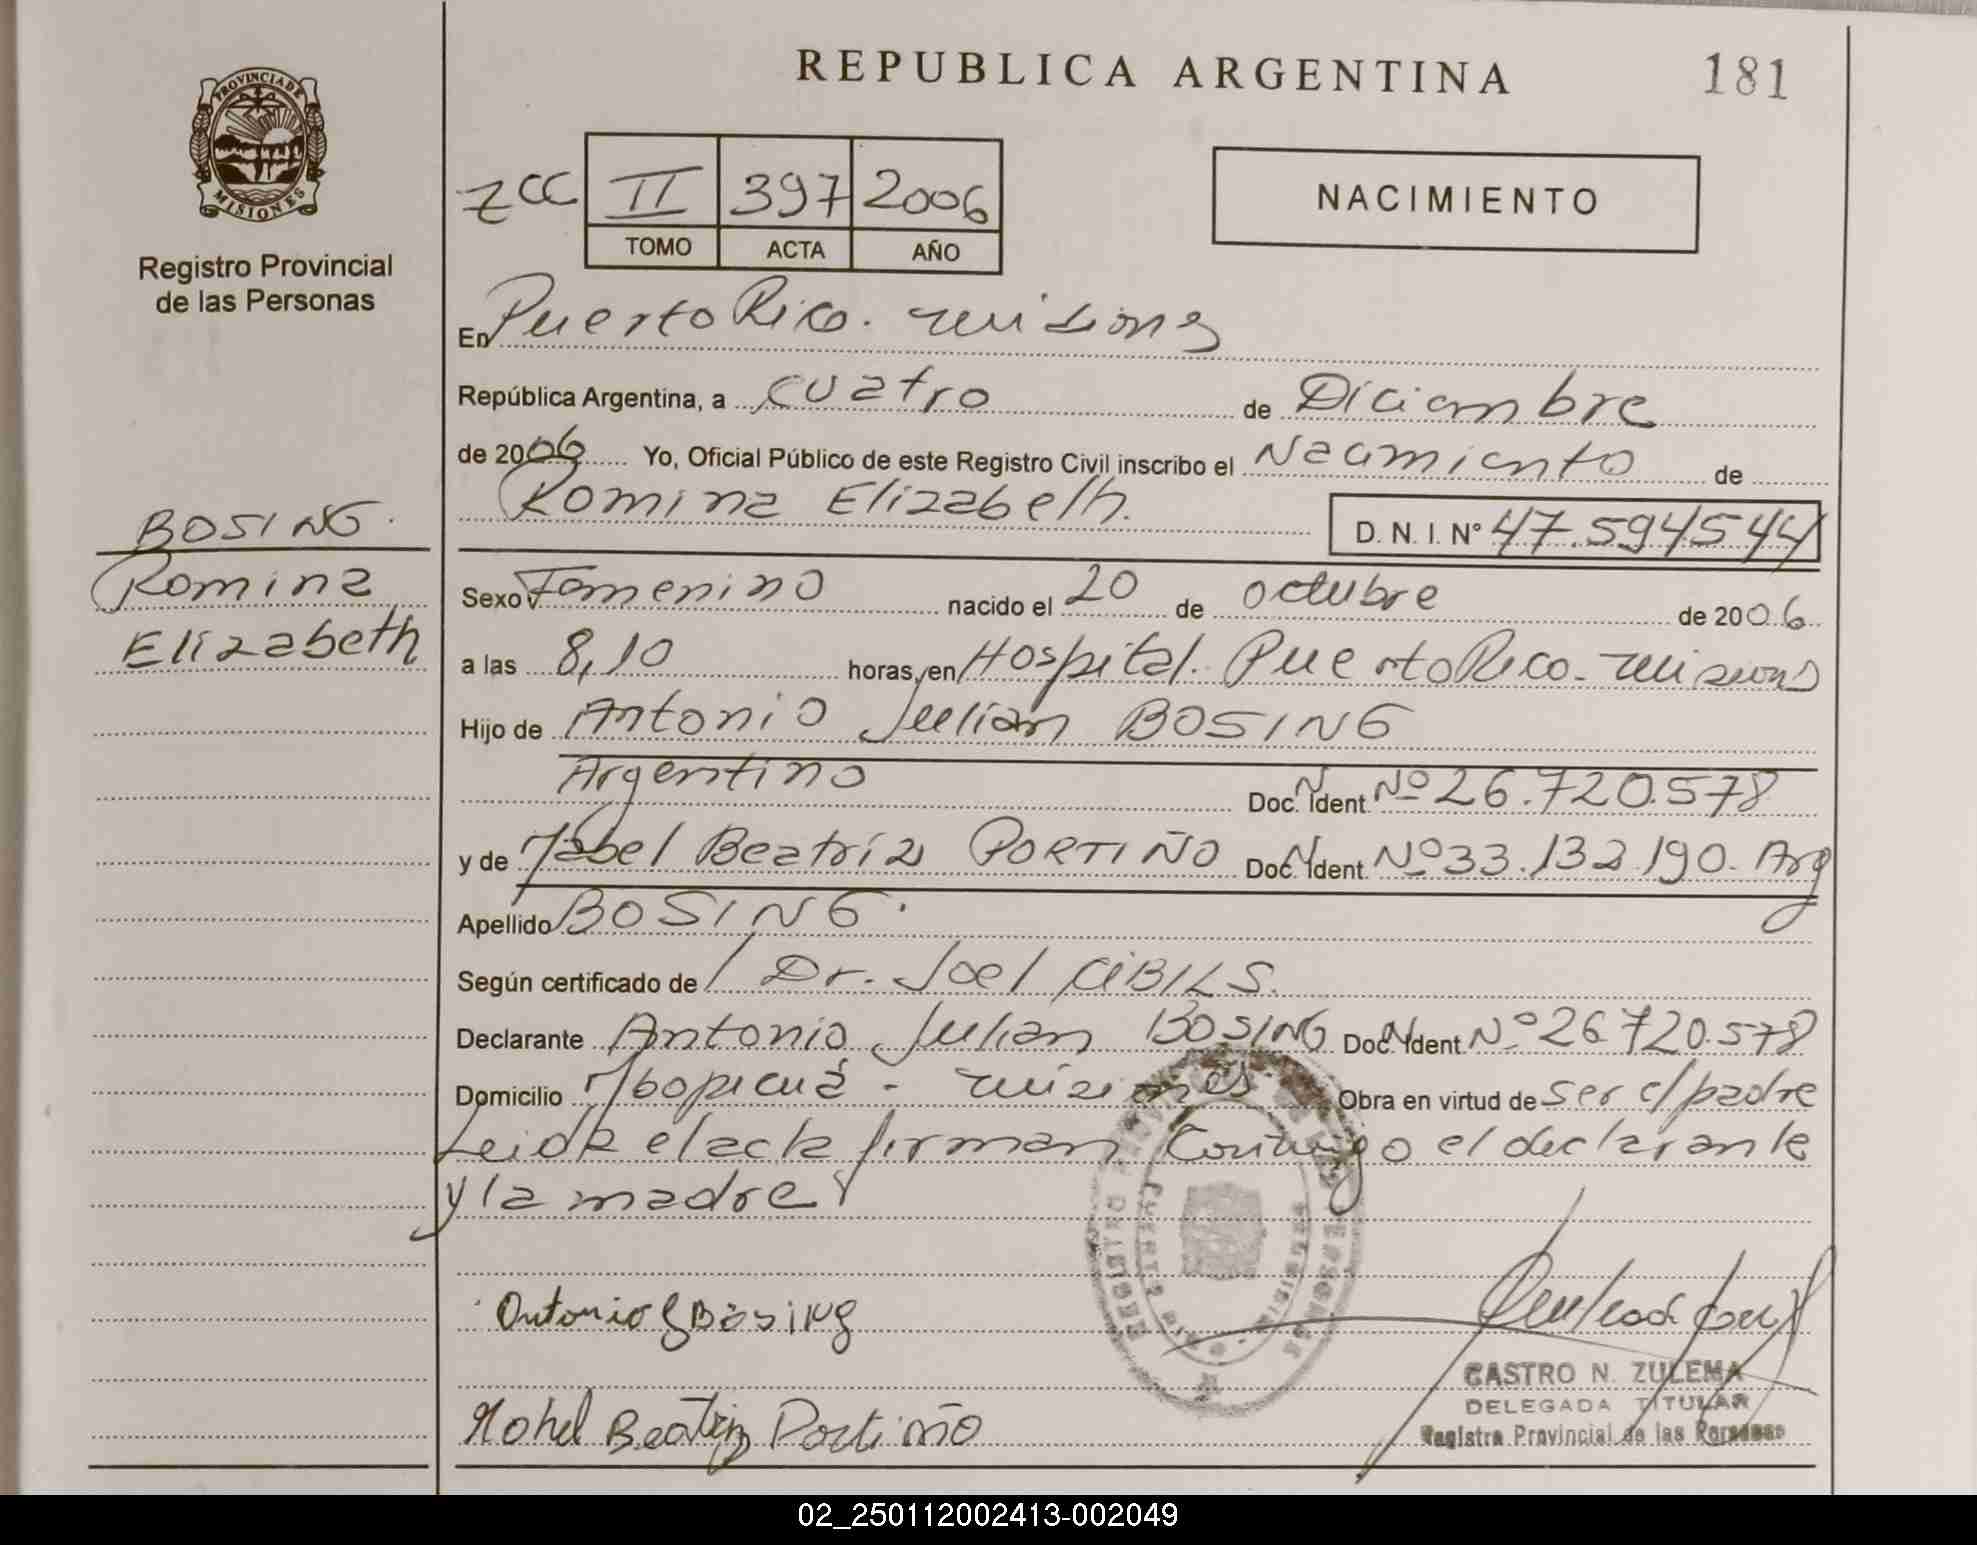 REPUBLICA ARGENTINA
181
PROVINCIA DE
MISIONES
Registro Provincial
de las Personas
ZCC II 397 2006
TOMO ACTA AÑO
NACIMIENTO
En Puerto Rico. Misiones
República Argentina, a cuatro de Diciembre
de 2006 Yo, Oficial Público de este Registro Civil inscribo el Nacimiento de
Romina Elizabeth.
D. N. I. Nº 47.594544
BOSING.
Romina
Elizabeth
Sexo Femenino nacido el 20 de octubre de 2006
a las 8,10 horas, en Hospital. Puerto Rico. Misiones
Hijo de Antonio Julian BOSING
Argentino Doc. N. Ident. Nº 26.720.578
y de Mabel Beatriz PORTIÑO Doc. N. Ident. Nº 33.132.190. Arg
Apellido BOSING.
Según certificado de Dr. Joel CIBILS.
Declarante Antonio Julian BOSING Doc. N. Ident. Nº 26.720.578
Domicilio Ybopicuá - Misiones Obra en virtud de ser el padre
Leida el acta firman Conmigo el declarante
y la madre
Antonio J Bosing
Beatriz Portiño
CASTRO N. ZULEMA
DELEGADA TITULAR
Registro Provincial de las Personas
02_250112002413-002049